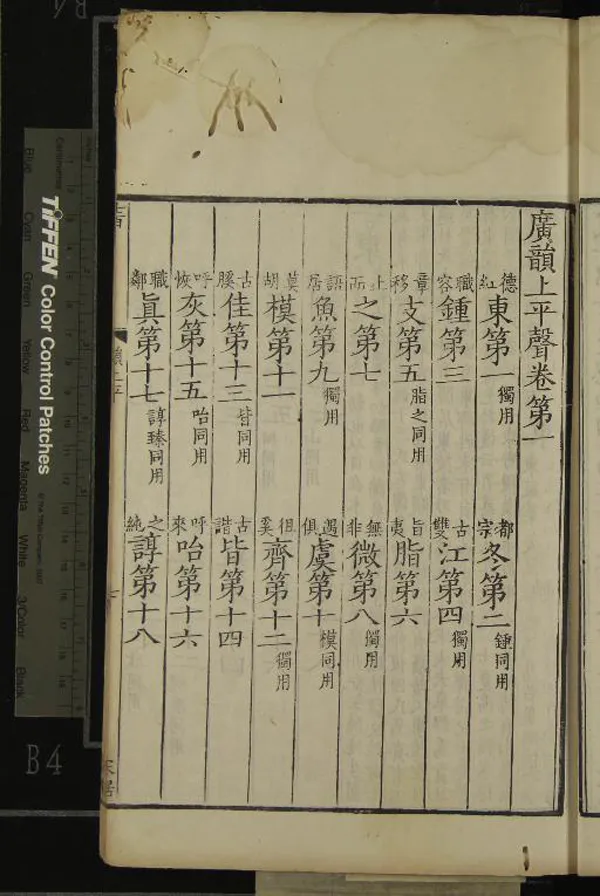 廣韻上平聲卷第一
德紅東第一獨用 都宗冬第二鍾同用
職容鍾第三 古雙江第四獨用
章移支第五脂之同用 旨夷脂第六
止而之第七 無非微第八獨用
語居魚第九獨用 遇俱虞第十模同用
莫胡模第十一 徂奚齊第十二獨用
古膎佳第十三皆同用 古諧皆第十四
呼恢灰第十五咍同用 呼來咍第十六
職鄰眞第十七諄臻同用 之純諄第十八
TIFFEN Color Control Patches
Blue
Cyan
Green
Yellow
Red
Magenta
White
3/Color
Black
B4
B4